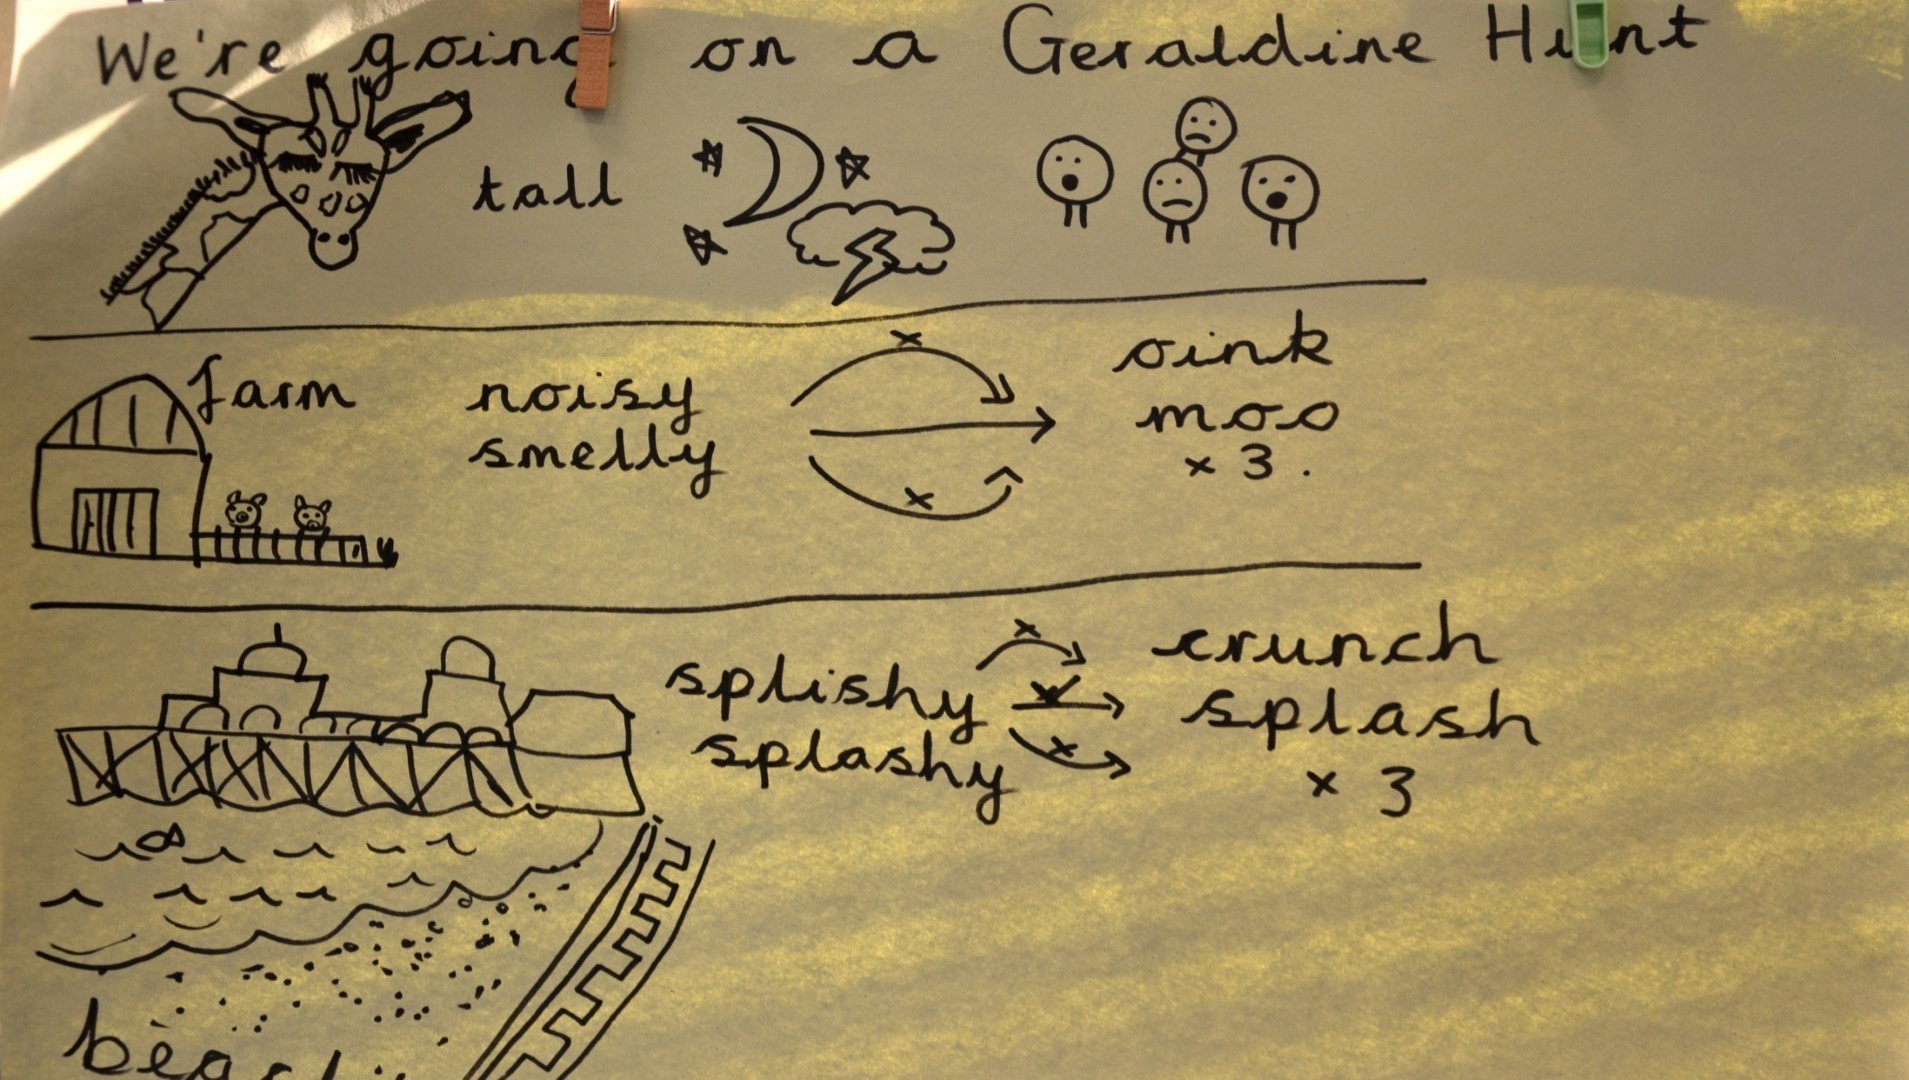 We're going on a Geraldine Hunt
tall
farm
noisy
smelly
oink
moo
× 3 .
splishy
splashy
crunch
splash
× 3